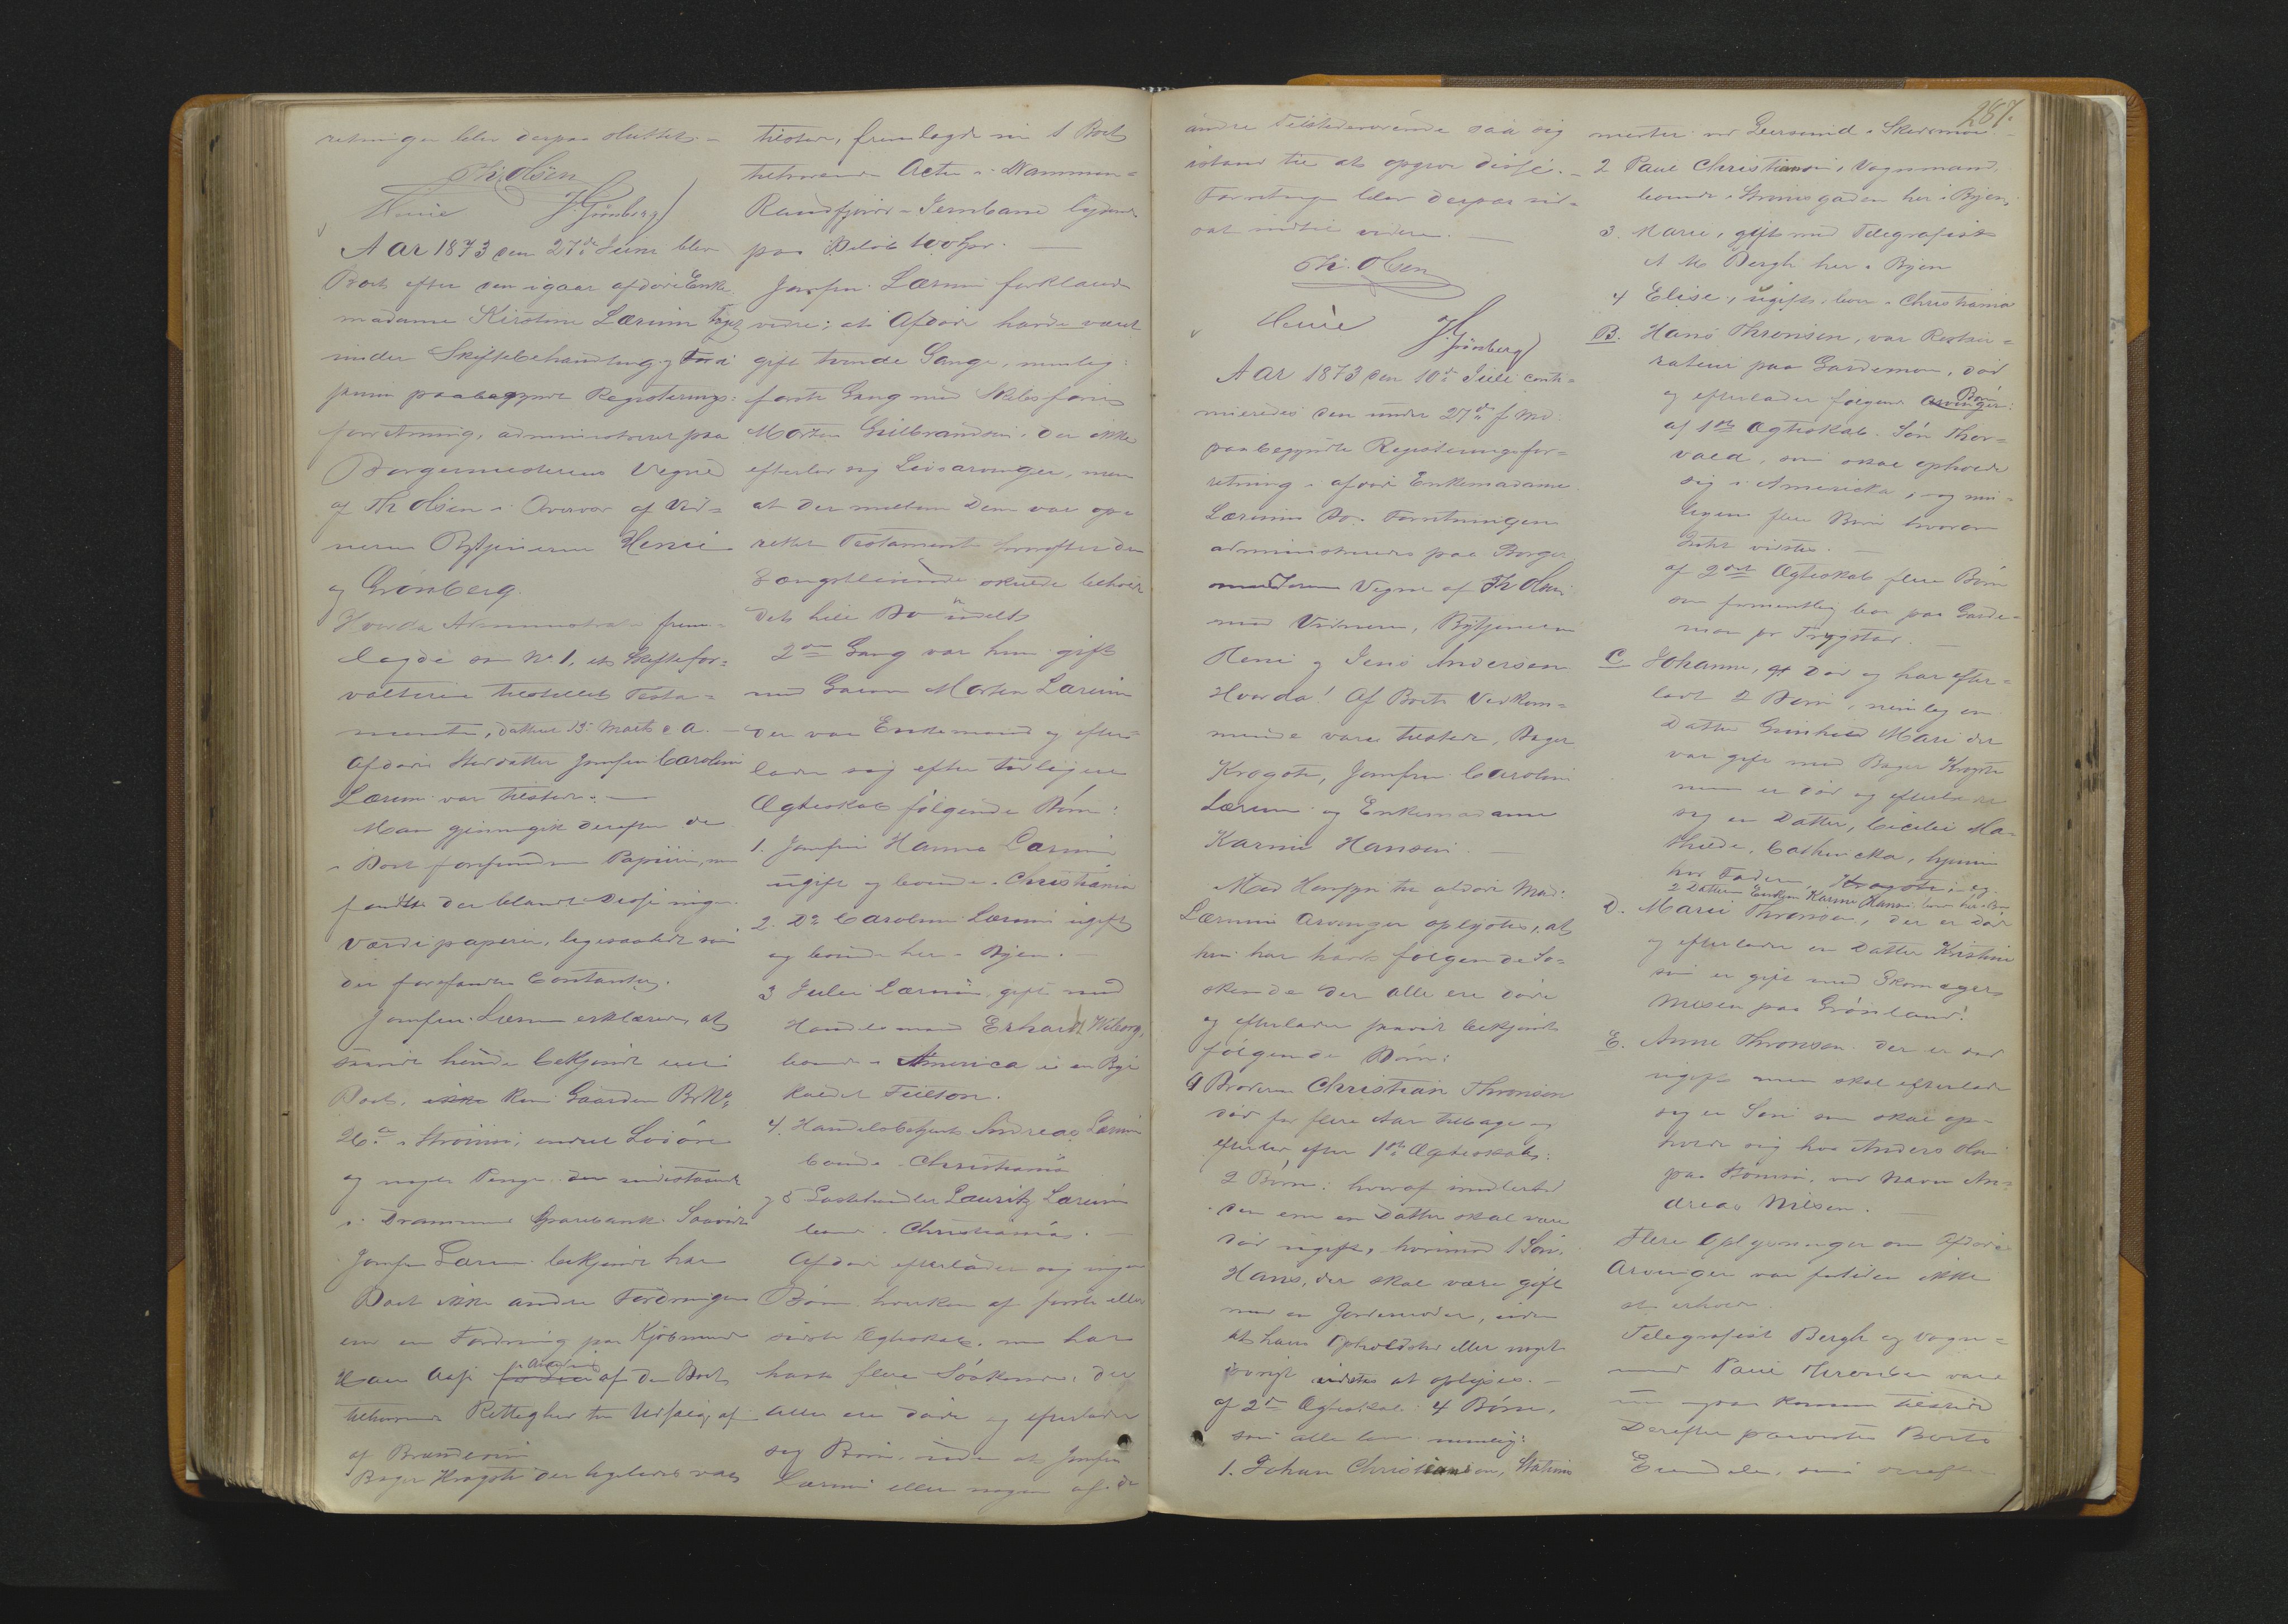 retningen blev derpaa sluttet. –
Th. Olsen
Henie J. Grønberg
Aar 1873 den 27de Juni blev
Boet efter den igaar afdøde Enke
madame Kirstine Lærum taget
under Skiftebehandling og
paabegyndt Registerings=
forretning, administreret paa
Borgermesterens Vegne
af Th Olsen i Overvær af Vid=
nerne Bytjenerne Henie
og Grønberg.
Hvorda Administrator frem=
lagde som No 1, et Skiftefor=
valteren tilstillet Testa=
mente, dateret 15 Marts d. A. –
Afdødes Steddatter Jomfru Caroline
Lærum var tilstede. –
Man gjennemgik derefter de
i Boet forefundne Papirer, men
fandtes der blandt disse ingen
Værdipapirer, ligesaalidt som
der forefandtes Contanter.
Jomfru Lærum erklærede, at
saavidt hende bekjendt eier
Boet, ikke kun Gaarden B.No
26 a i Strømsø, endeel Løsøre
og nogle Penge indestaaende
i Drammens Sparebank. Saavidt
Jomfru Lærum bekjendt har
Boet ikke andre Fordringer
end en Fordring paa Kjøbmand
af den Boet
tilhørende Rettighed til Udsalg af
af Brændeviin
Bager Krogste der ligeledes var
tilstede, fremlagde en 1 Boet
tilhørende Actie i Drammen=
Randfjord-Jernbane lydende
paa Beløb 100 Spd. –
Jomfru Lærum forklarede
videre, at Afdøde havde været
gift tvende Gange, nemlig:
første Gang med Skibsfører
Morten Gulbrandsen, der ikke
efterlod sig Livsarvinger, men
at der mellem dem var op=
rettet Testament hvorefter den
Længstlevende skulde beholde
det hele Bo udelt
2den Gang var hun gift
med Garver Morten Lærum
der var Enkemand og efter=
lader sig efter tidligere
Ægteskab følgende Børn:
1. Jomfru Hanna Lærum
ugift og boende i Christiania
2. Do Caroline Lærum ugift
og boende her i Byen. –
3 Julie Lærum, gift med
Handelsmand Erhardt Wiborg,
boende i America i en By
kaldet Fulton.
4. Handelsbetjent Andreas Lærum
boende i Christiania
og 5 Lauritz Lærum
boende i Christiania. –
Afdøde efterlader sig ingen
Børn hverken af første eller
sidste Ægteskab, men har
havt flere Søskende, der
alle ere døde og efterlader
sig Børn, uden at Jomfru
Lærum eller nogen af de
287.
andre Tilstedeværende saa sig
istand til at opgive disse. –
Forretningen blev derpaa ud=
sat indtil videre. –
Th. Olsen
Henie J. Grønberg
Aar 1873 den 10de Juli conti=
nueredes den under 27de f. Md.
paabegyndte Registeringsfor=
retning i afdøde Enkemadame
Lærums Bo. Forretningen
administreredes paa Borger
mesterens Vegne af Th Olsen
med Vidnerne, Bytjenerne
Henie og Jens Andersen
Hvorda! Af Boets Vedkom=
mende vare tilstede, Bager
Krogste, Jomfru Caroline
Lærum og Enkemadame
Karine Hansen. –
Med Hensyn til afdøde Mad:
Lærums Arvinger oplystes, at
hun har havt følgende Sø=
skende der alle ere døde
og efterlader saavidt bekjendt
følgende Børn:
A Broderen Christian Thronsen
død for flere Aar tilbage og
efterlod efter 1ste Ægteskab:
2 Børn: hvoraf imidlertid
den ene en Datter skal være
død ugift, hvorimod 1 Søn,
Hans, der skal være gift
med en Jordemoder, uden
at hans Opholdssted eller noget
øvrigt vidstes at oplyses. –
af 2det Ægteskab: 4 Børn,
som alle leve nemlig:
1. Johan Christiansen, Stations
mester ved Leersund i Skedsmo –
2 Paul Christiansen, Vognmand
boende i Strømsgaden her i Byen,
3. Marie, gift med Telegrafist
A M Bergh her i Byen
4 Elise, ugift, boer i Christiania
B. Hans Thronsen, var Restau=
rateur paa Gardemoen, død
og efterlader følgende Arvinger: Børn
af 1ste Ægteskab. Søn Thor=
vald, som skal opholde
sig i America, og mu=
ligens flere Børn hvorom
Intet vidstes. –
af 2det Ægteskab flere Børn
som formentlig boer paa Garde=
moen pr Trygstad. –
C Johanne, død og har efter=
ladt 2 Børn, nemlig en
Datter Gunhild Marie der
var gift med Bager Krogste
men er død og efterlader
sig en Datter, Cecilie Ma=
thilde, Cathinka, hjemme
hos Faderen, Krogste, og
2 Datteren Enken Karine Hansen boer her i Byen
D. Marie Thronsen, der er død
og efterlader en Datter Kristine
som er gift med Skomager
Nilsen paa Grønland!
E. Anne Thronsen der er død
ugift men skal efterlade
sig en Søn som skal op=
holde sig hos Anders Olsen
paa Strømsø, ved Navn An=
dreas Nilsen. –
Flere Oplysninger om Afdødes
Arvinger var fortiden ikke
at erholde.
Telegrafist Bergh og Vogn=
mand Paul Thronsen vare
nu ogsaa kommen tilstede
Derefter passertes Boets
Eiendele, som derefter